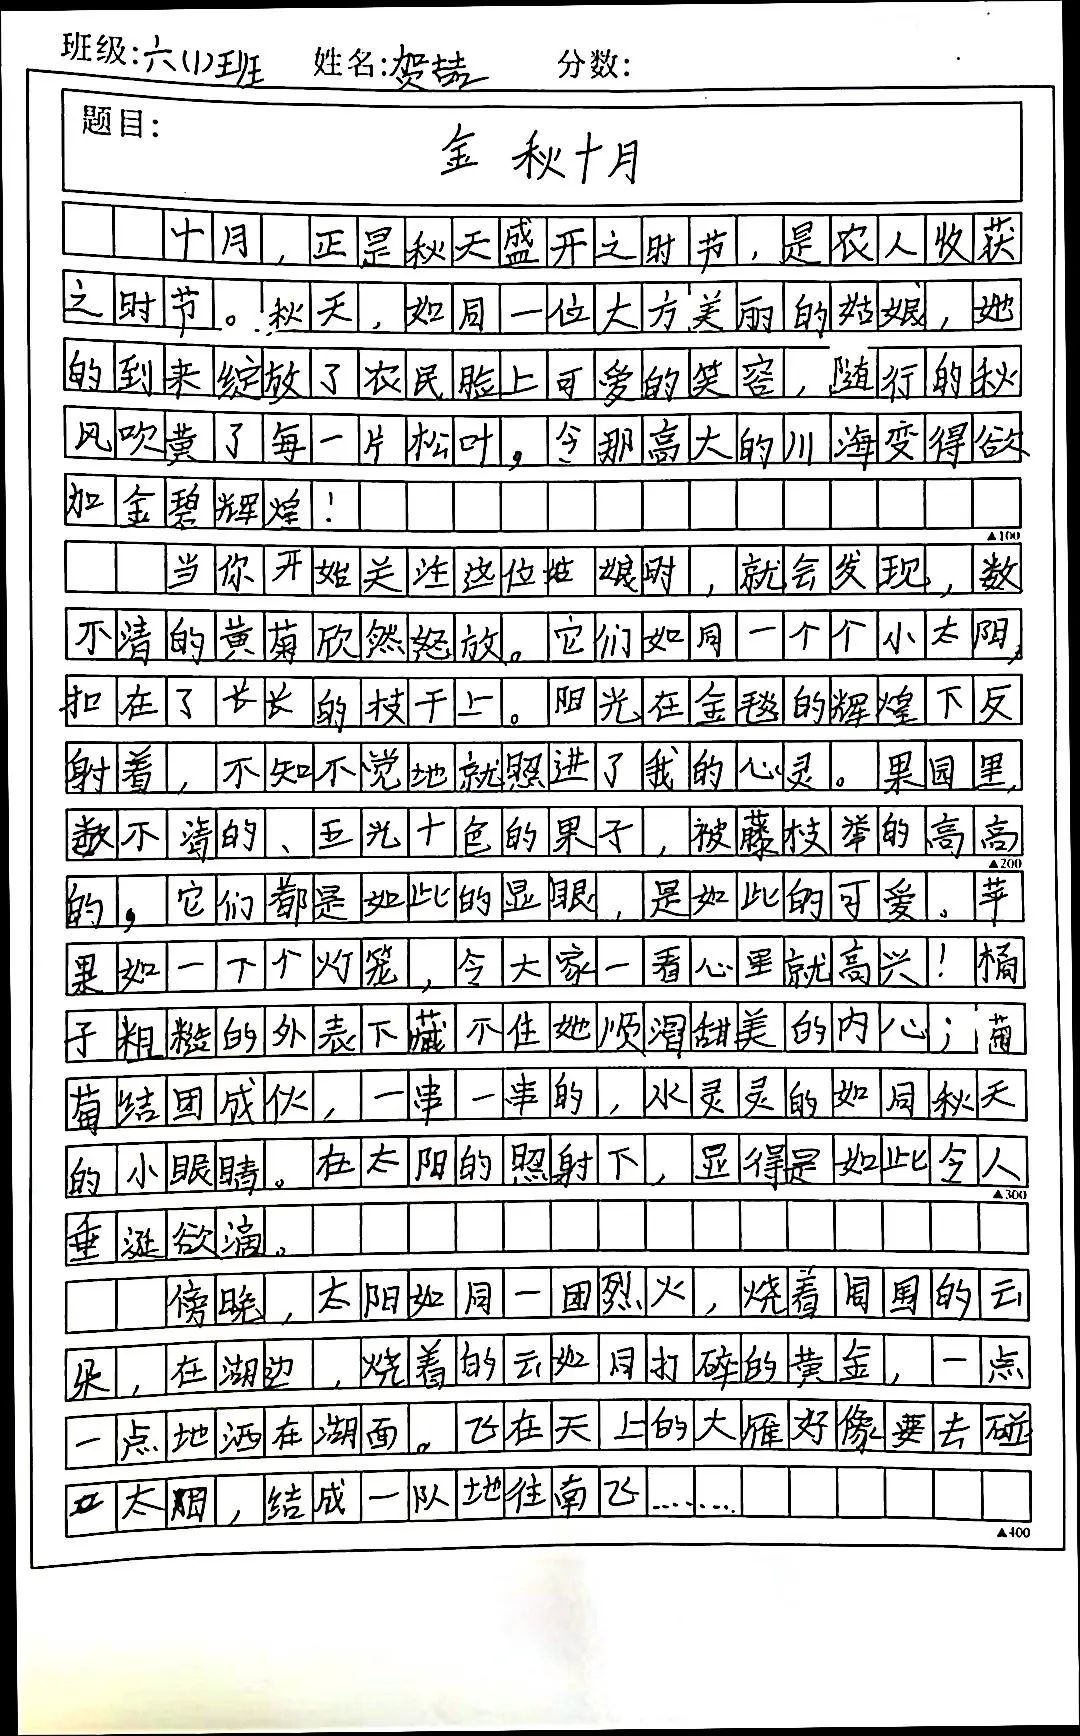 班级:六(1)班 姓名:贺喆 分数:
题目:
金秋十月
十月,正是秋天盛开之时节,是农人收获
之时节。秋天,如同一位大方美丽的姑娘,她
的到来绽放了农民脸上可爱的笑容,随行的秋
风吹黄了每一片松叶,令那高大的川海变得欲
加金碧辉煌!
▲100
当你开始关注这位姑娘时,就会发现,数
不清的黄菊欣然怒放。它们如同一个个小太阳,
扣在了长长的枝干上。阳光在金毯的辉煌下反
射着,不知不觉地就照进了我的心灵。果园里,
数不清的、五光十色的果子,被藤枝举的高高
▲200
的,它们都是如此的显眼,是如此的可爱。苹
果如一下个灯笼,令大家一看心里就高兴!橘
子粗糙的外表下藏不住她顺滑甜美的内心;葡
萄结团成伙,一串一串的,水灵灵的如同秋天
的小眼睛。在太阳的照射下,显得是如此令人
▲300
垂涎欲滴。
傍晚,太阳如同一团烈火,烧着周围的云
朵,在湖边,烧着的云如同打碎的黄金,一点
一点地洒在湖面。飞在天上的大雁好像要去碰
太阳,结成一队地往南飞……
▲400